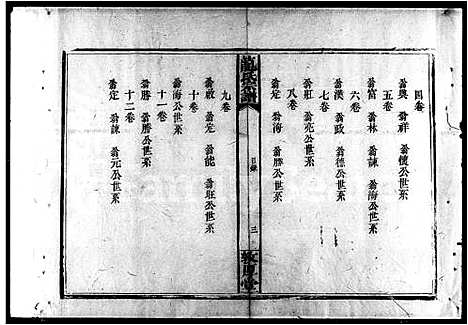 四卷
翁興 翁祥 翁懷公世系
五卷
翁富 翁林 翁諫 翁海公世系
六卷
翁漢 翁政 翁德公世系
七卷
翁莊 翁亮公世系
八卷
翁定 翁海 翁勝公世系
氏譜
目錄
三
敦厚堂
九卷
翁啟 翁定 翁能 翁旺公世系
十卷
翁海公世系
十一卷
翁勝 翁勝公世系
十二卷
翁定 翁諫 翁元公世系